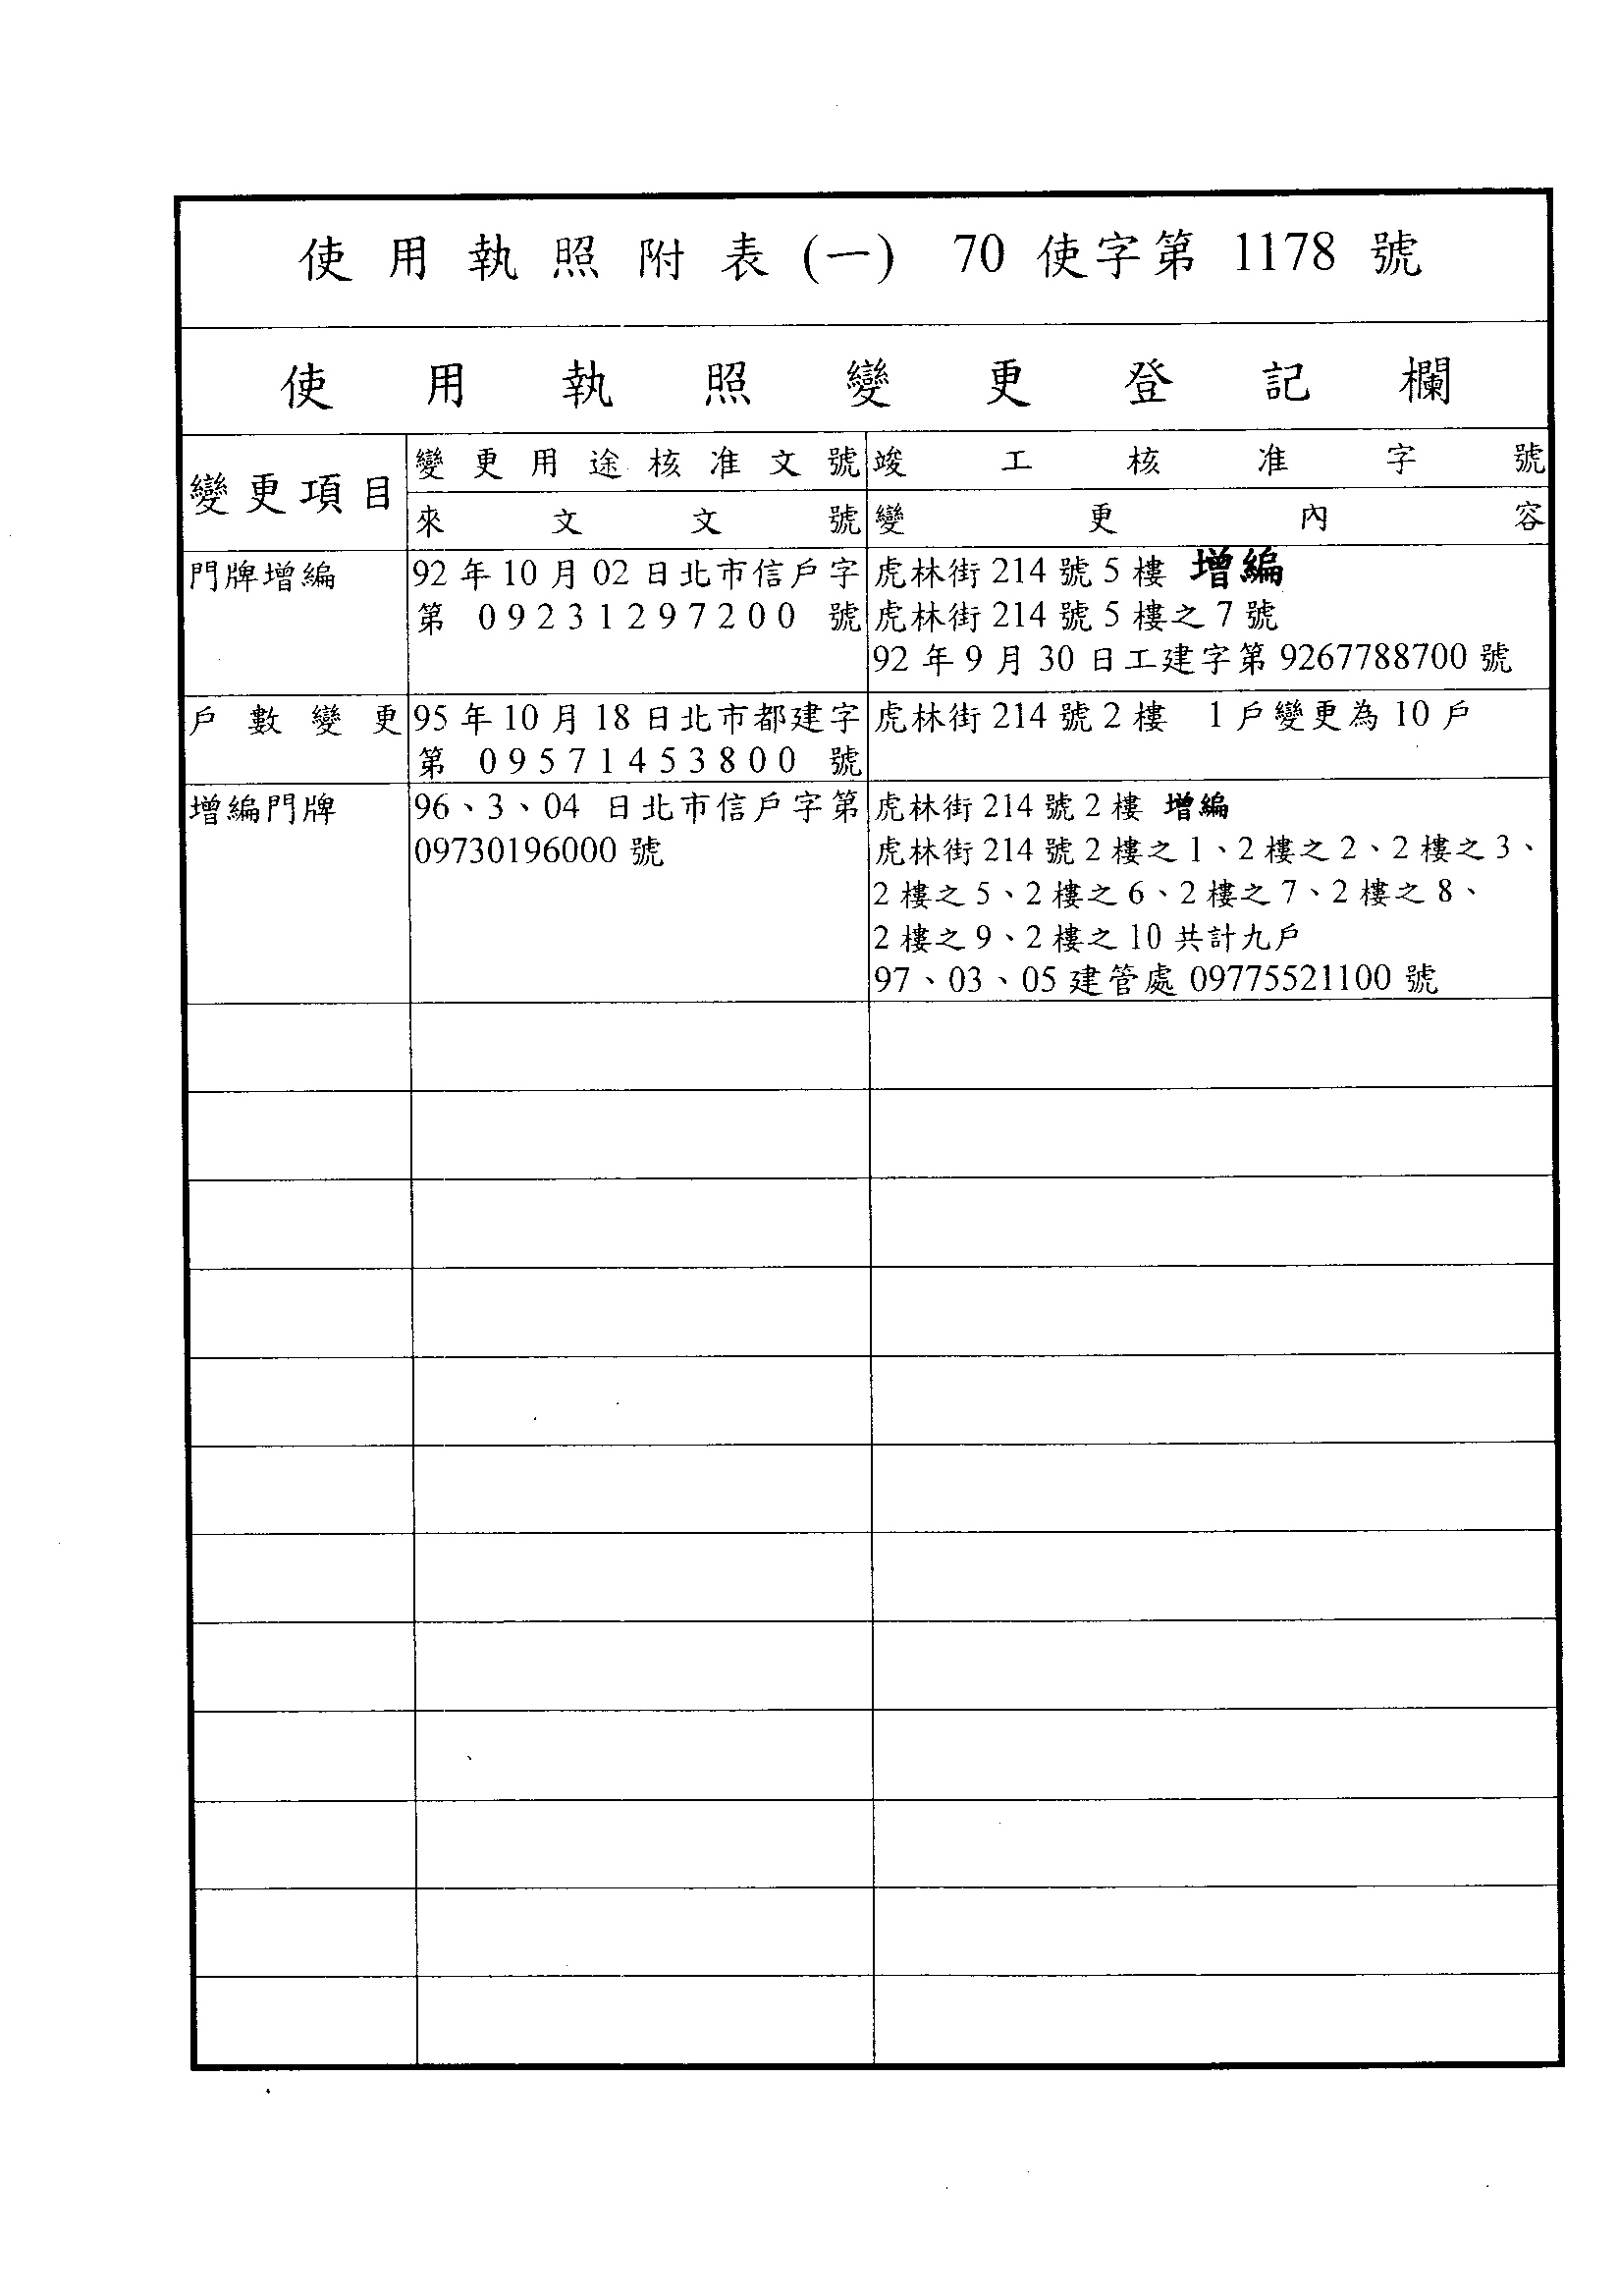 使用執照附表(一) 70使字第1178號
使用執照變更登記欄
變更項目
變更用途核准文號
竣工核准字號
來文文號
變更內容
門牌增編
92年10月02日北市信戶字
第09231297200號
虎林街214號5樓 增編
虎林街214號5樓之7號
92年9月30日工建字第9267788700號
戶數變更
95年10月18日北市都建字
第09571453800號
虎林街214號2樓 1戶變更為10戶
增編門牌
96、3、04 日北市信戶字第
09730196000號
虎林街214號2樓 增編
虎林街214號2樓之1、2樓之2、2樓之3、
2樓之5、2樓之6、2樓之7、2樓之8、
2樓之9、2樓之10共計九戶
97、03、05建管處09775521100號